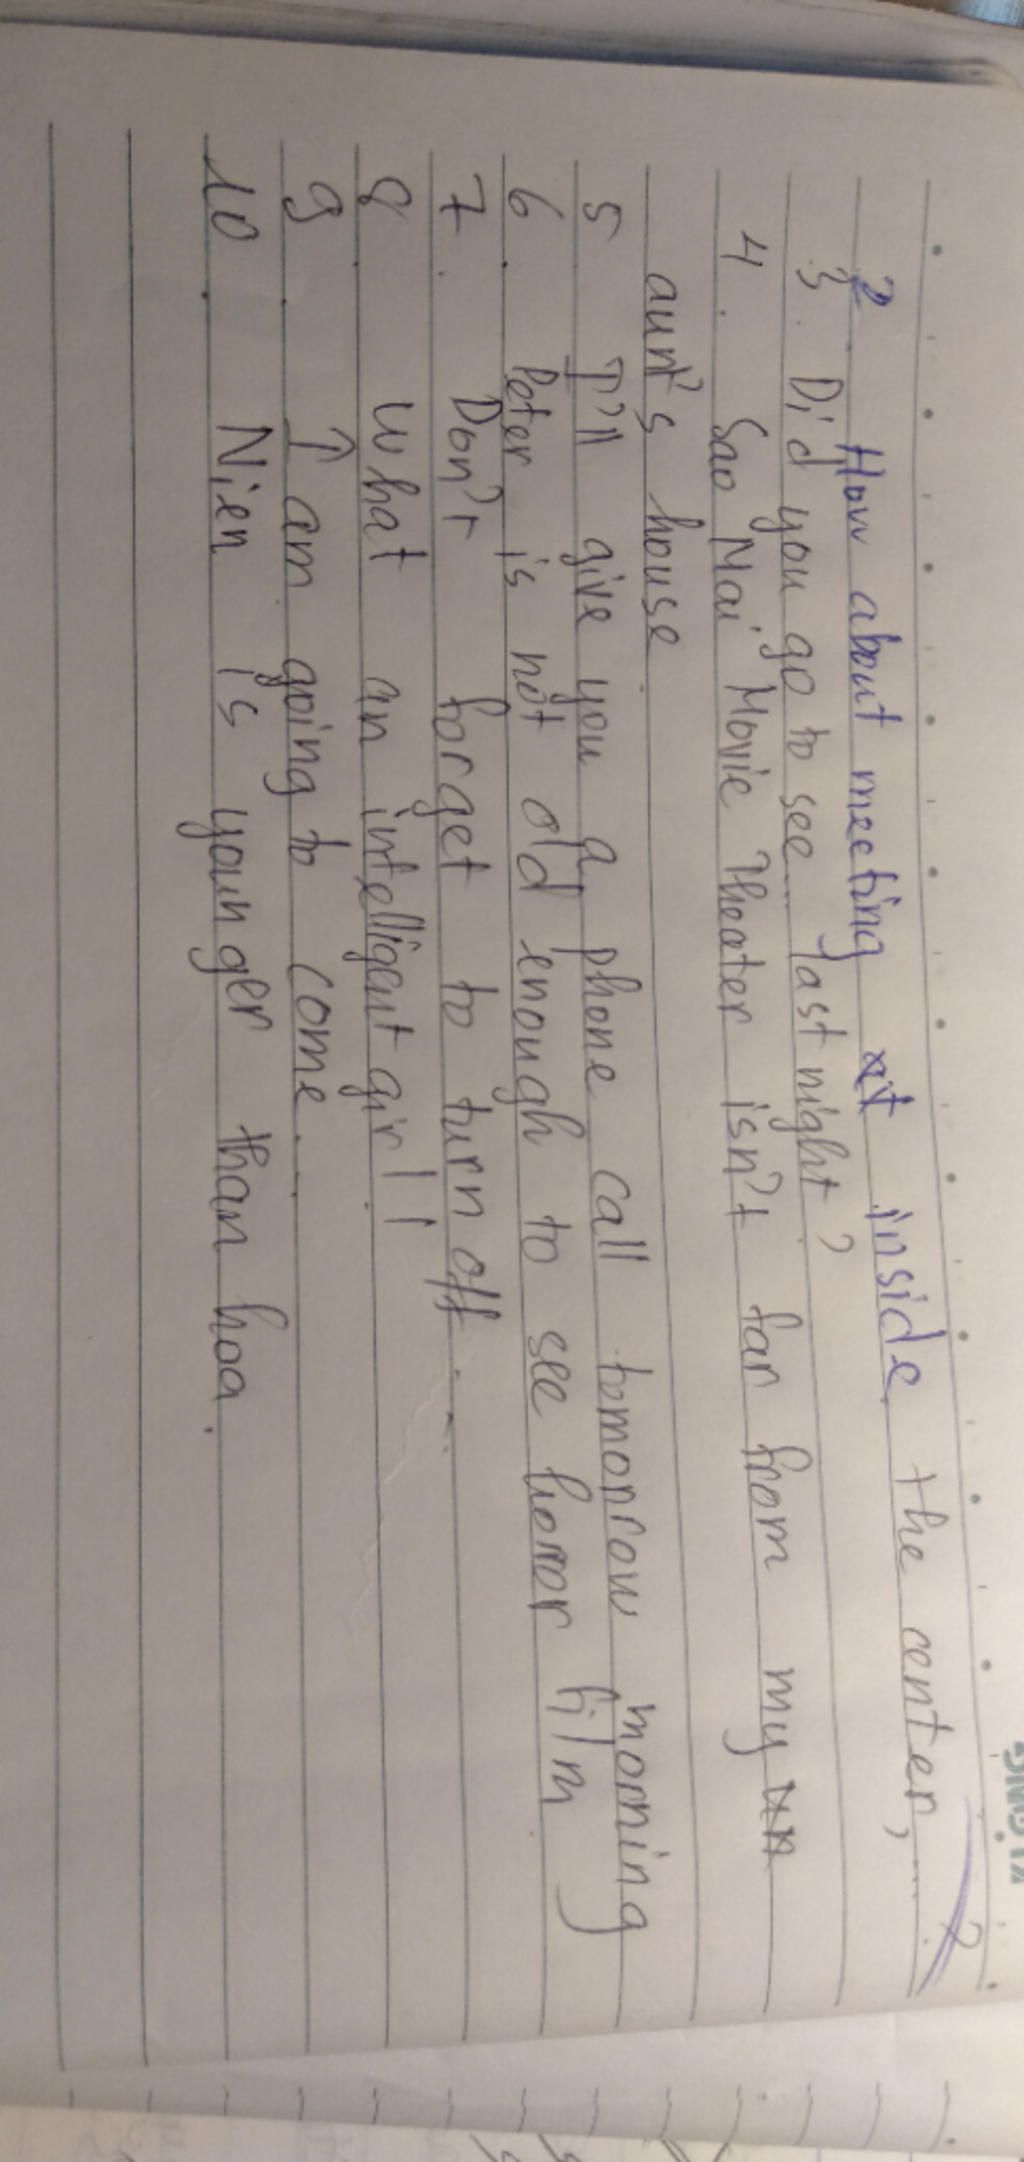 2. How about meeting at inside the center, ......?
3. Did you go to see ... last night?
4. Sao Mai Movie Theater isn't far from my
aunt's house.
5 I'll give you a phone call tomorrow morning
6. Peter is not old enough to see horror film
7. Don't forget to turn off ....
8. What an intelligent girl!
9. I am going to come ....
10. Nien is younger than hoa.